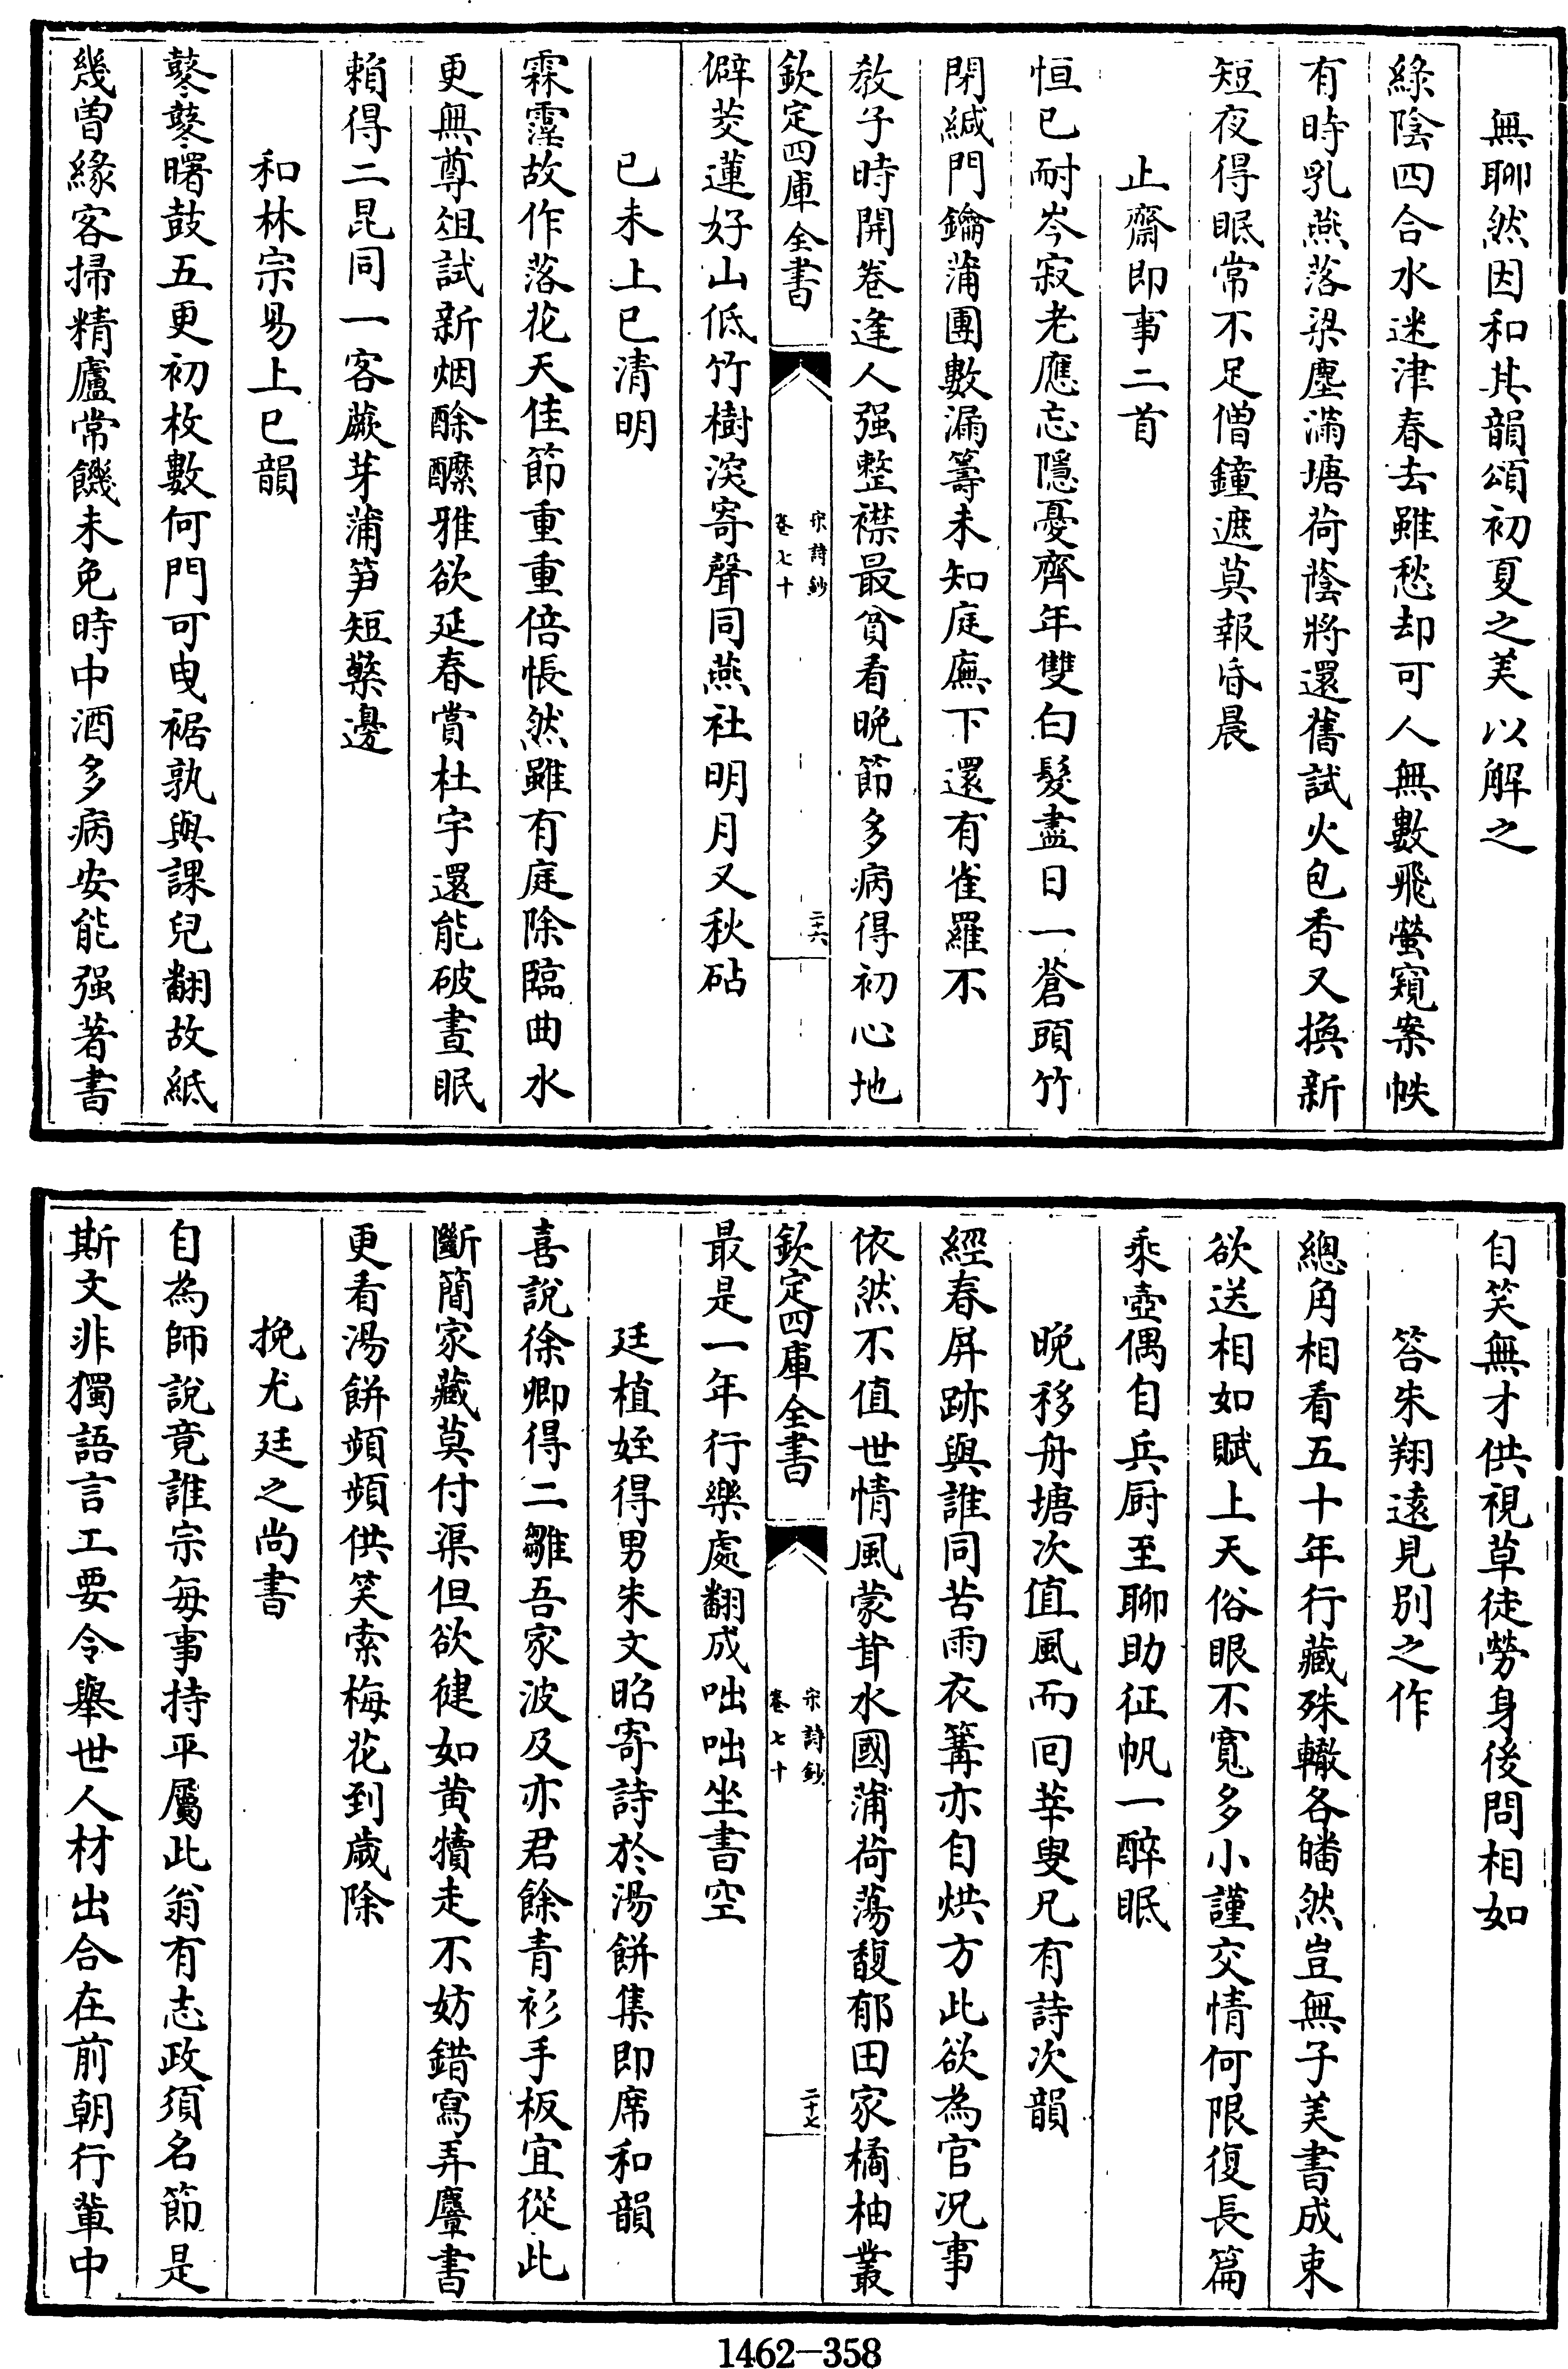 無聊然因和其韻頌初夏之美以解之
綠陰四合水迷津春去雖愁却可人無數飛螢窺案帙
有時乳燕落梁塵滿塘荷蔭將還舊試火包香又換新
短夜得眠常不足僧鐘遮莫報昏晨
止齋即事二首
恒巳耐岑寂老應忘隱憂齊年雙白髮盡日一蒼頭竹
閉緘門鑰蒲團數漏籌未知庭廡下還有雀羅不
教子時開卷逢人强整襟最貧看晩節多病得初心地
欽定四庫全書
宋詩鈔
卷七十
二十六
僻茭蓮好山低竹樹深寄聲同燕社明月又秋砧
已未上巳清明
霖霪故作落花天佳節重重倍悵然雖有庭除臨曲水
更無尊俎試新烟酴醿雅欲延春賞杜宇還能破晝眠
賴得二昆同一客蕨芽蒲笋短檠邊
和林宗易上巳韻
鼕鼕曙鼓五更初枚數何門可曳裾孰與課兒翻故紙
幾曽緣客掃精廬常饑未免時中酒多病安能强著書
自笑無才供視草徒勞身後問相如
答朱翔遠見别之作
總角相看五十年行藏殊轍各皤然豈無子美書成束
欲送相如賦上天俗眼不寛多小謹交情何限復長篇
乘壺偶自兵厨至聊助征帆一醉眠
晩移舟塘次值風而回莘叟兄有詩次韻
經春屛跡與誰同苦雨衣篝亦自烘方此欲為官况事
依然不值世情風蒙茸水國蒲荷蕩馥郁田家橘柚叢
欽定四庫全書
宋詩鈔
卷七十
二十七
最是一年行樂處翻成咄咄坐書空
廷植姪得男朱文昭寄詩於湯餅集即席和韻
喜說徐卿得二雛吾家波及亦君餘青衫手板宜從此
斷簡家藏莫付渠但欲健如黄犢走不妨錯寫弄麞書
更看湯餅頻頻供笑索梅花到歲除
挽尤廷之尚書
自為師說竟誰宗每事持平屬此翁有志政須名節是
斯文非獨語言工要令舉世人材出合在前朝行輩中
1462-358